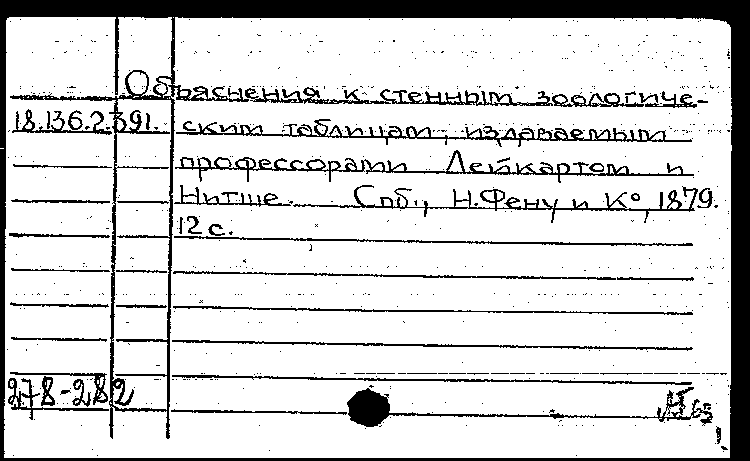 Объяснения к стенным зоологиче-
18.136.2.391. ским таблицам, издаваемым
профессорами Лейкартом и
Нитше. Спб., Н.Фену и К°, 1879.
12 с.
278-282